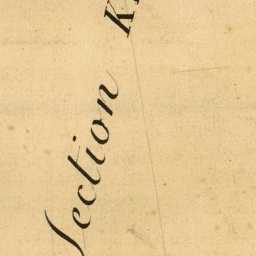 Section K